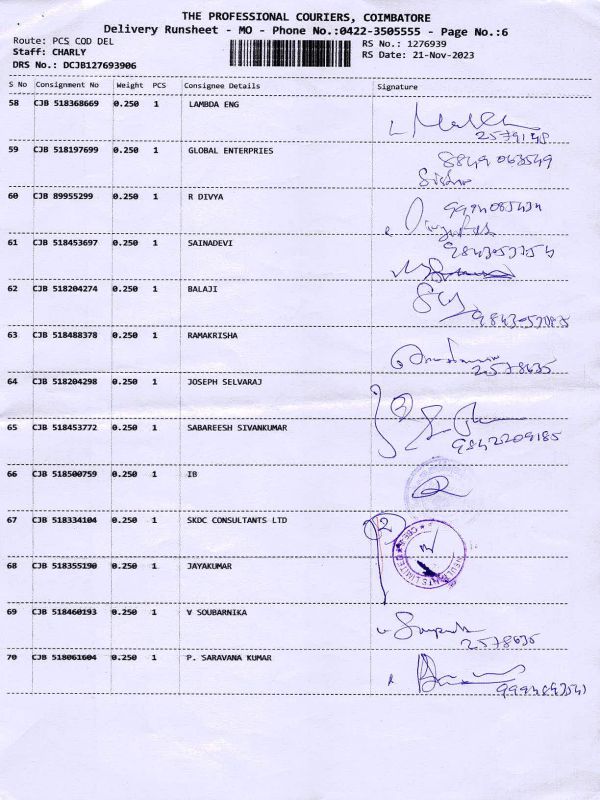 THE PROFESSIONAL COURIERS, COIMBATORE
Delivery Runsheet - MO - Phone No.:0422-3505555 - Page No.:6
Route: PCS COD DEL
RS No.: 1276939
Staff: CHARLY
RS Date: 21-Nov-2023
DRS No.: DCJB127693906
S No Consignment No Weight PCS Consignee Details Signature
58 CJB 518368669 0.250 1 LAMBDA ENG
59 CJB 518197699 0.250 1 GLOBAL ENTERPRIES
8849063549
60 CJB 89955299 0.250 1 R DIVYA
61 CJB 518453697 0.250 1 SAINADEVI
62 CJB 518204274 0.250 1 BALAJI
63 CJB 518488378 0.250 1 RAMAKRISHA
2578635
64 CJB 518204298 0.250 1 JOSEPH SELVARAJ
65 CJB 518453772 0.250 1 SABAREESH SIVANKUMAR
9842209185
66 CJB 518500759 0.250 1 IB
67 CJB 518334104 0.250 1 SKDC CONSULTANTS LTD
2
68 CJB 518355190 0.250 1 JAYAKUMAR
69 CJB 518460193 0.250 1 V SOUBARNIKA
2578635
70 CJB 518061604 0.250 1 P. SARAVANA KUMAR